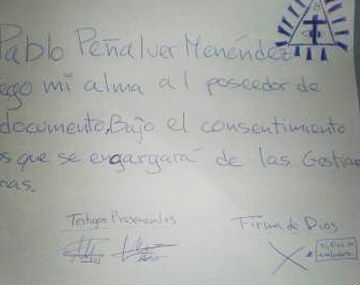 Pablo Peñalver Menéndez
ego mi alma al poseedor de
documento, Bajo el consentimiento
os que se engargará de las Gestion
mas.
Testigos Presenciales
Firma de Dios
X